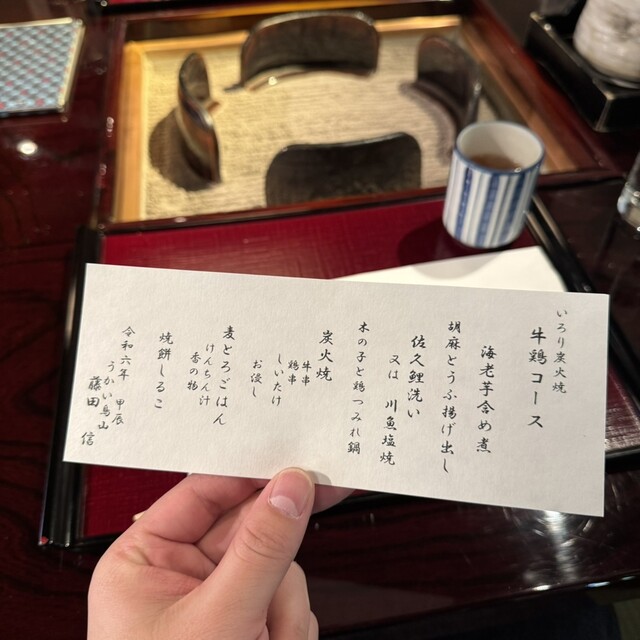 いろり炭火焼
牛鶏コース
海老芋含め煮
胡麻どうふ揚げ出し
佐久鯉洗い
又は 川魚塩焼
木の子と鶏つみれ鍋
炭火焼
牛串
鶏串
しいたけ
お浸し
麦とろごはん
けんちん汁
香の物
焼餅しるこ
令和六年 甲辰
うかい鳥山
藤田 信